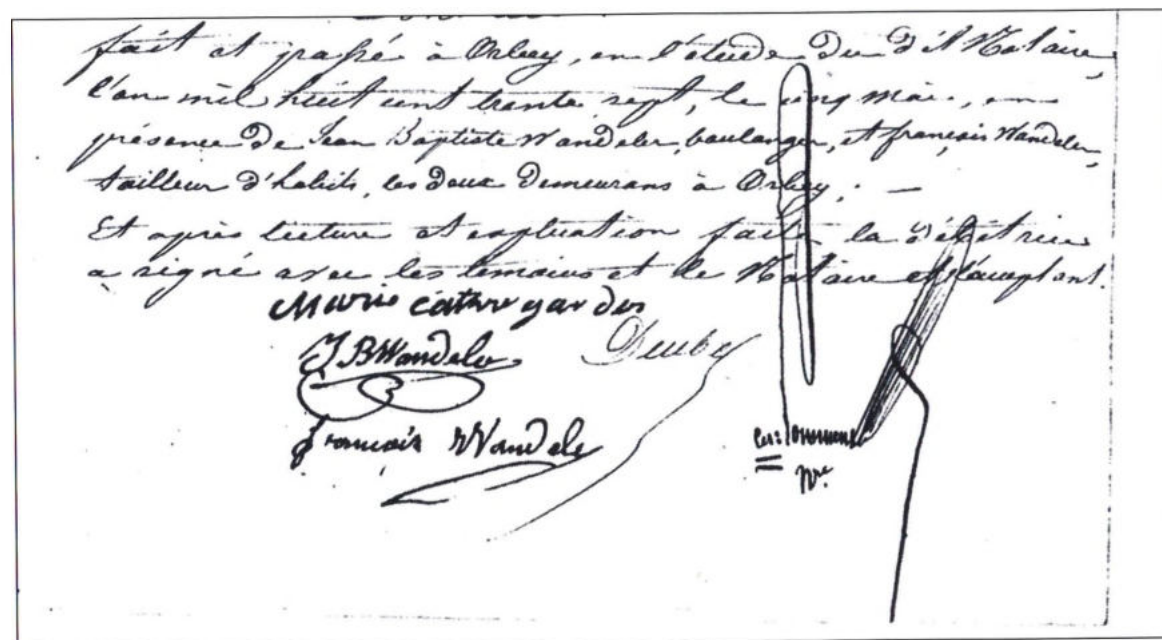 fait et passé à Orbey, en l'étude du dit Notaire,
l'an mil huit cent trente sept, le cinq mai, en
présence de Jean Baptiste Wandeler, boulanger, et françois Wandeler,
tailleur d'habits, les deux demeurans à Orbey. —
Et après lecture et explication faite la débitrice
a signé avec les témoins et le Notaire et l'acceptant.
Marie Cathe gardes
J B Wandeler
françois Wandele
Nre